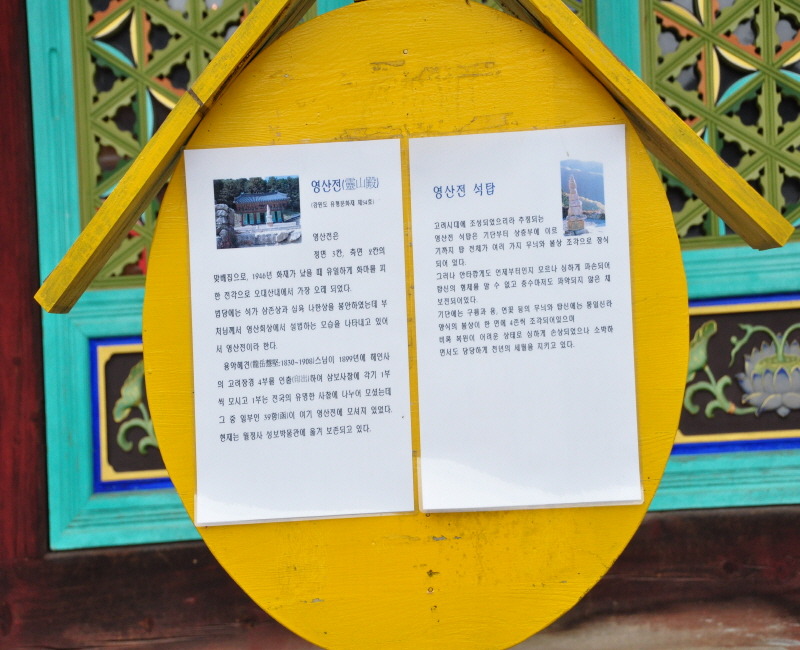 영산전(靈山殿)
(강원도 유형문화재 제34호)
영산전은
정면 3칸, 측면 2칸의
맞배집으로, 1946년 화재가 났을 때 유일하게 화마를 피
한 전각으로 오대산내에서 가장 오래 되었다.
법당에는 석가 삼존상과 십육 나한상을 봉안하였는데 부
처님께서 영산회상에서 설법하는 모습을 나타내고 있어
서 영산전이라 한다.
용악혜견(龍岳慧堅:1830~1908)스님이 1899년에 해인사
의 고려장경 4부를 인출(印出)하여 삼보사찰에 각기 1부
씩 모시고 1부는 전국의 유명한 사찰에 나누어 모셨는데
그 중 일부인 39함(函)이 여기 영산전에 모셔져 있었다.
현재는 월정사 성보박물관에 옮겨 보존되고 있다.
영산전 석탑
고려시대에 조성되었으리라 추정되는
영산전 석탑은 기단부터 상층부에 이르
기까지 탑 전체가 여러 가지 무늬와 불상 조각으로 장식
되어 있다.
그러나 안타깝게도 언제부터인지 모르나 심하게 파손되어
탑신의 형체를 알 수 없고 층수마저도 파악되지 않은 채
보전되어있다.
기단에는 구름과 용, 연꽃 등의 무늬와 탑신에는 통일신라
양식의 불상이 한 면에 4존씩 조각되어있으며
비록 복원이 어려운 상태로 심하게 손상되었으나 소박하
면서도 당당하게 천년의 세월을 지키고 있다.